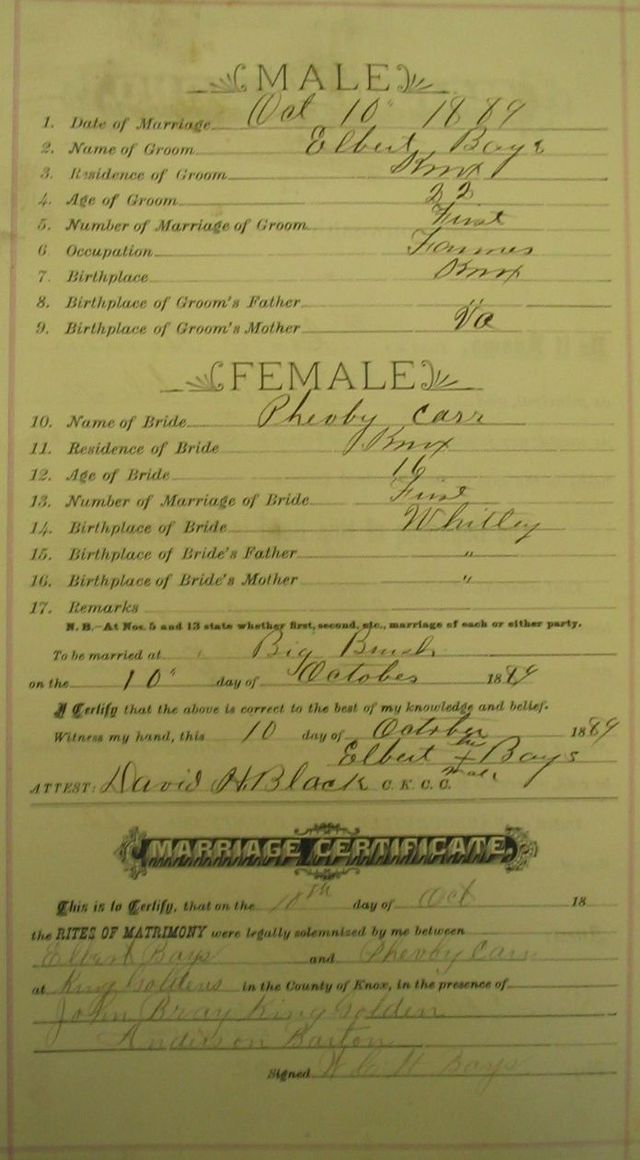 MALE
1. Date of Marriage Oct 10" 1889
2. Name of Groom Elbert Bays
3. Residence of Groom Knox
4. Age of Groom 22
5. Number of Marriage of Groom First
6 Occupation Farmer
7. Birthplace Knox
8. Birthplace of Groom's Father "
9. Birthplace of Groom's Mother Va
FEMALE
10. Name of Bride Pheoby Carr
11. Residence of Bride Knox
12. Age of Bride 16
13. Number of Marriage of Bride First
14. Birthplace of Bride Whitley
15. Birthplace of Bride's Father "
16. Birthplace of Bride's Mother "
17. Remarks
N. B.—At Nos. 5 and 13 state whether first, second, etc., marriage of each or either party.
To be married at Big Brush
on the 10" day of October 1889
I Certify that the above is correct to the best of my knowledge and belief.
Witness my hand, this 10 day of October 1889
Elbert his x mark Bays
ATTEST: David H. Black C. K. C. C.
MARRIAGE CERTIFICATE.
This is to Certify, that on the 10th day of Oct 18
the RITES OF MATRIMONY were legally solemnized by me between
Elbert Bays and Pheoby Carr
at King Goldens in the County of Knox, in the presence of
John Bray King Golden
Anderson Barton
Signed W C H Bays